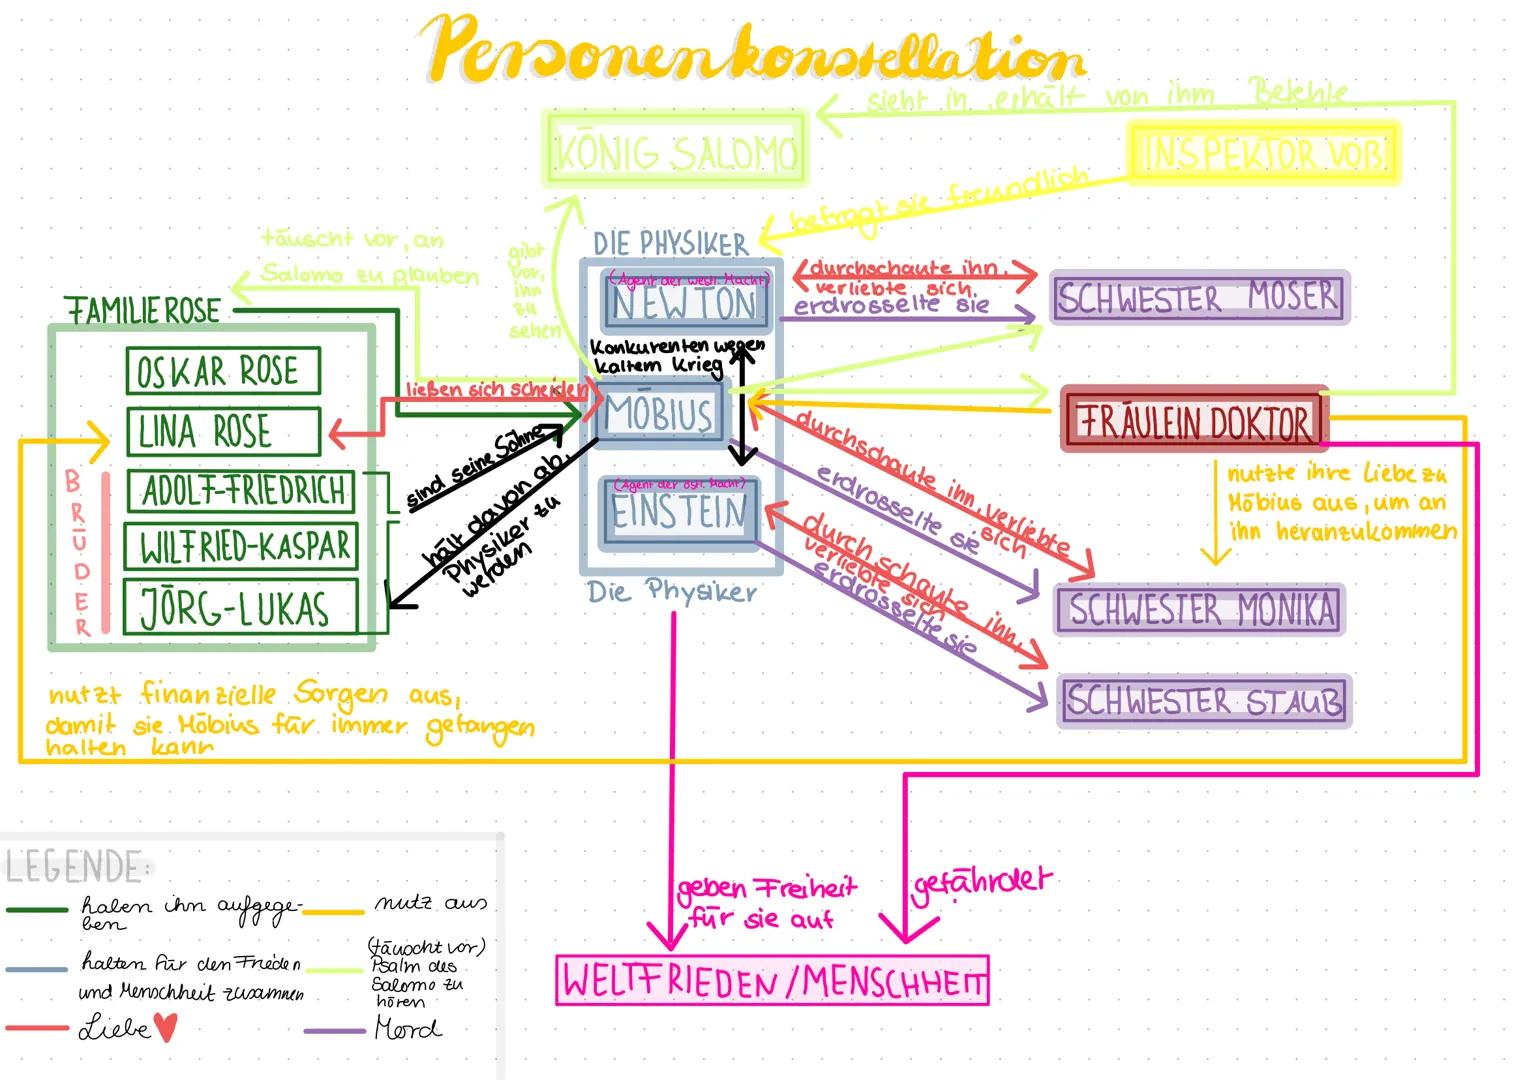 Personenkonstellation
sieht in, erhält von ihm Befehle
KÖNIG SALOMO
INSPEKTOR VOß
befragt sie freundlich
täuscht vor, an
Salomo zu glauben
gibt
vor,
ihn
zu
sehen
DIE PHYSIKER
(Agent der westl. Macht)
NEWTON
durchschaute ihn,
verliebte sich
erdrosselte sie
SCHWESTER MOSER
FAMILIE ROSE
OSKAR ROSE
LINA ROSE
ADOLF-FRIEDRICH
WILFRIED-KASPAR
JÖRG-LUKAS
BRÜDER
ließen sich scheiden
Konkurenten wegen
kaltem Krieg
MÖBIUS
sind seine Söhne
hält davon ab,
Physiker zu
werden
(Agent der östl. Macht)
EINSTEIN
Die Physiker
durchschaute ihn, verliebte
sich
erdrosselte sie
durchschaute ihn,
verliebte sich
erdrosselte sie
FRÄULEIN DOKTOR
nutzte ihre Liebe zu
Möbius aus, um an
ihn heranzukommen
SCHWESTER MONIKA
SCHWESTER STAUB
nutzt finanzielle Sorgen aus,
damit sie Möbius für immer gefangen
halten kann
geben Freiheit
für sie auf
gefährdet
WELTFRIEDEN/MENSCHHEIT
LEGENDE:
haben ihn aufgege-
ben
nutz aus
halten für den Frieden
und Menschheit zusammen
(täuscht vor)
Psalm des
Salomo zu
hören
Liebe
Mord